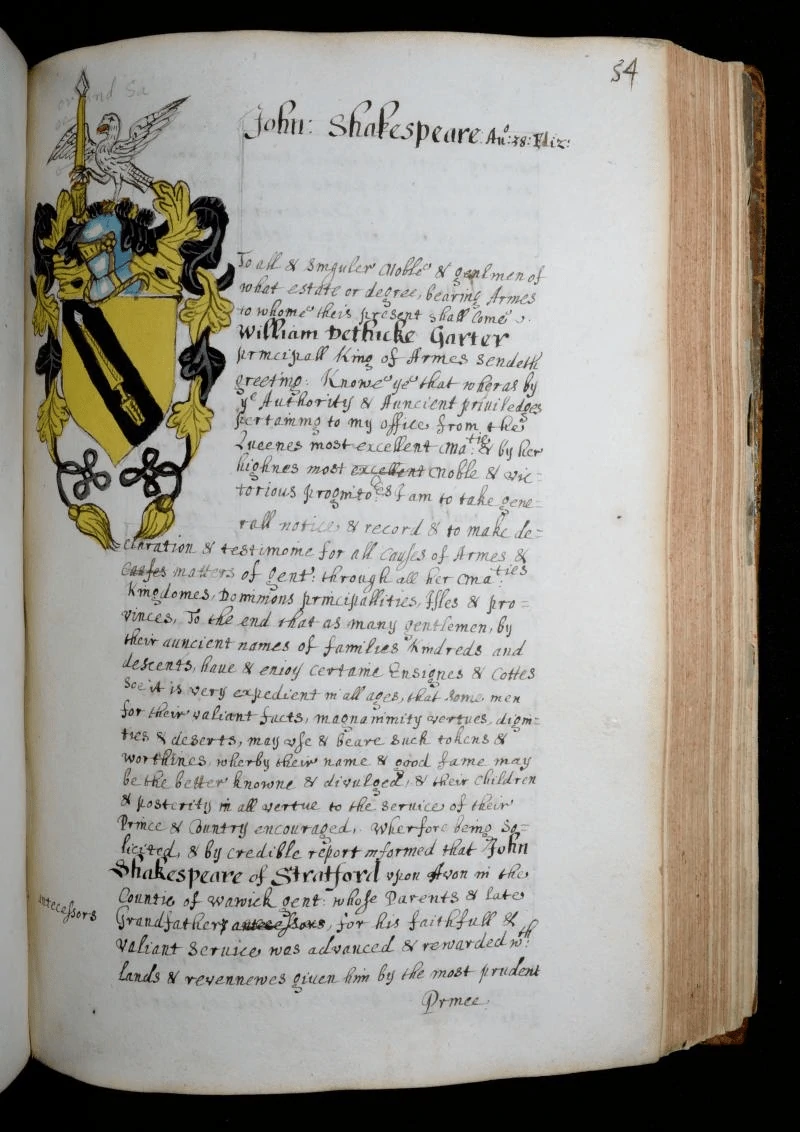 54
or and Sa
John: Shakespeare. Ano: 38: Eliz:
To all & singuler Noble & gentlmen of
what estate or degree, bearing Armes
to whome theis present shall Come
William Dethicke Garter
principall King of Armes sendeth
greeting: Knowe ye that wheras by
ye Authority & Auncient priviledges
pertaining to my office from the
Queenes most excellent Ma:tie & by her
highnes most excellent Noble & vic=
torious prognito:es I am to take gene=
rall notice & record & to make de=
claration & testimonie for all Causes of Armes &
Causes matters of gent: through all her Ma:ties
Kingdomes, Dominions principallities, Isles & pro=
vinces, To the end that as many gentlemen, by
their auncient names of families Kindreds and
descents, haue & enioy certaine Ensignes & Cottes
Soe it is very expedient in all ages, that some men
for their valiant facts, magnanimity vertues, digni=
ties & deserts, may vse & beare such tokens &
worthines, wherby their name & good fame may
be the better knowne & divulged, & their children
& posterity in all vertue to the service of their
Prince & Country encouraged,. Wherfore being So=
licited, & by credible report informed that John
Shakespeare of Stratford vpon Avon in the
Countie of Warwick gent: whose Parents & late
antecessors
Grandfather, antecessors, for his faithfull &
valiant service was advanced & rewarded wth:
lands & revennewes given him by the most prudent
Prince